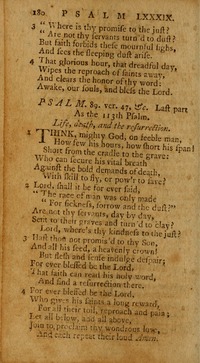 180 PSALM LXXXIX.
3 "Where is thy promise to the just?
"Are not thy servants turn'd to dust?"
But faith forbids these mournful sighs,
And sees the sleeping dust arise.
4 That glorious hour, that dreadful day,
Wipes the reproach of saints away,
And clears the honor of thy word:
Awake, our souls, and bless the Lord.
PSALM. 89. ver. 47, &c. Last part
As the 113th Psalm.
Life, death, and the resurrection.
1 THINK, mighty God, on feeble man,
How few his hours, how short his span!
Short from the cradle to the grave:
Who can secure his vital breath
Against the bold demands of death,
With skill to fly, or pow'r to save?
2 Lord, shall it be for ever said,
"The race of man was only made
"For sickness, sorrow and the dust?"
Are not thy servants, day by day,
Sent to their graves and turn'd to clay?
Lord, where's thy kindness to the just?
3 Hast thou not promis'd to thy Son,
And all his seed, a heavenly crown?
But flesh and sense indulge despair;
For ever blessed be the Lord,
That faith can read his holy word,
And find a resurrection there.
4 For ever blessed be the Lord,
Who gives his saints a long reward,
For all their toil, reproach and pain;
Let all below, and all above,
Join to proclaim thy wondrous love,
And each repeat their loud Amen.